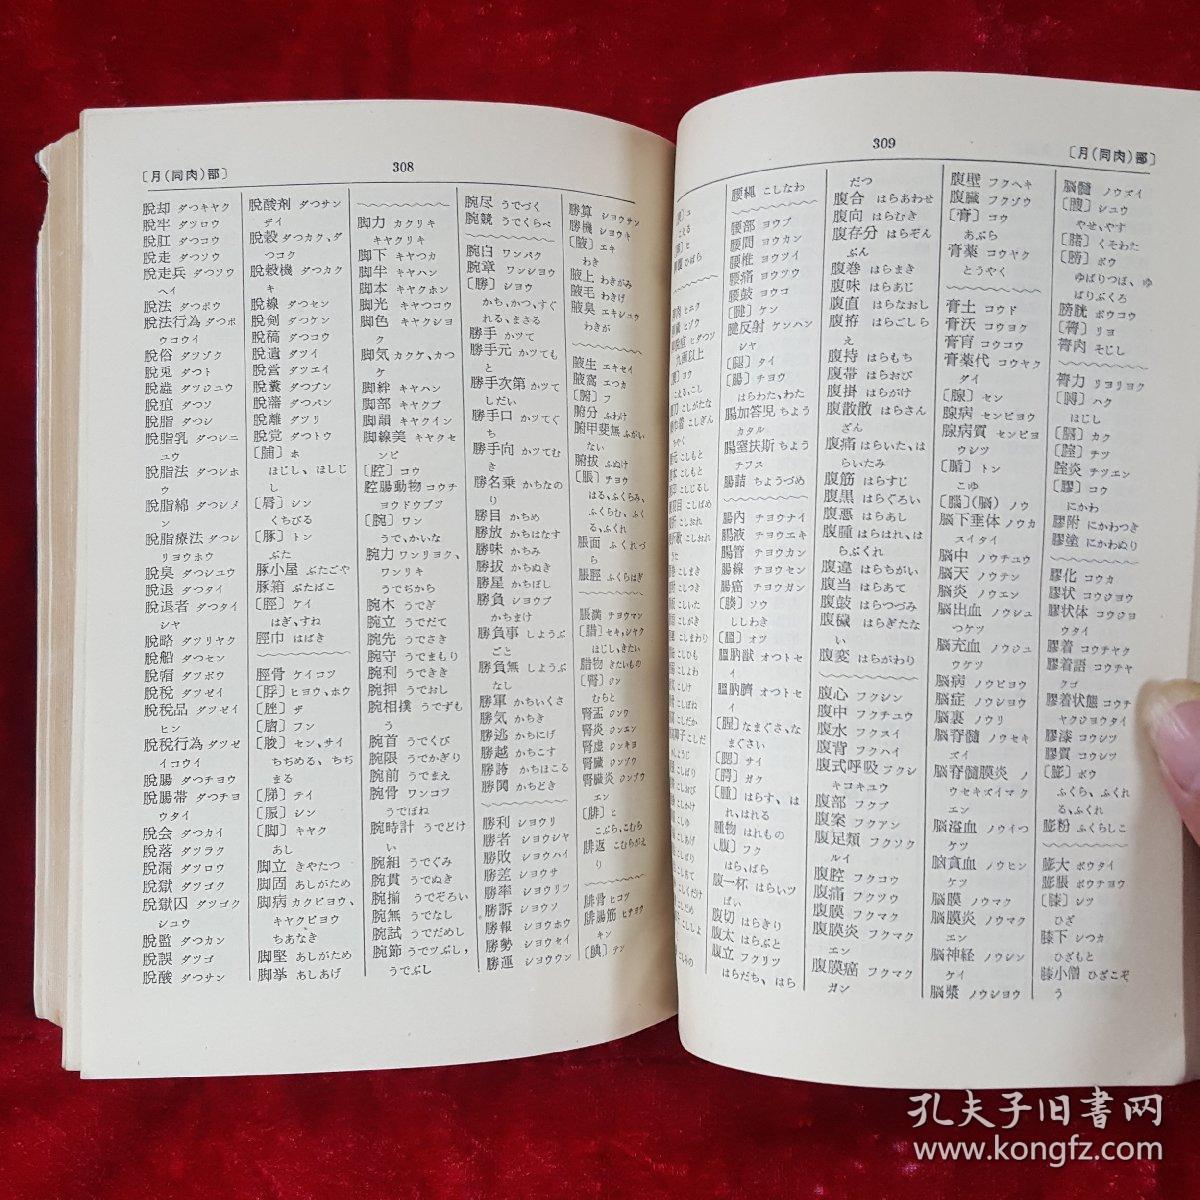 〔月(同肉)部〕
308
脱却 ダツキヤク
脱牢 ダツロウ
脱肛 ダツコウ
脱走 ダツソウ
脱走兵 ダツソウ
ヘイ
脱法 ダツポウ
脱法行為 ダツポ
ウコウイ
脱俗 ダツゾク
脱兎 ダツト
脱疽 ダツソ
脱脂 ダツシ
脱脂乳 ダツシニ
ユウ
脱脂法 ダツシホ
ウ
脱脂綿 ダツシメ
ン
脱脂療法 ダツシ
リヨウホウ
脱臭 ダツシユウ
脱退 ダツタイ
脱退者 ダツタイ
シヤ
脱略 ダツリヤク
脱船 ダツセン
脱税 ダツゼイ
脱税品 ダツゼイ
ヒン
脱税行為 ダツゼ
イコウイ
脱腸 ダツチヨウ
脱腸帯 ダツチヨ
ウタイ
脱会 ダツカイ
脱落 ダツラク
脱漏 ダツロウ
脱獄 ダツゴク
脱獄囚 ダツゴク
シユウ
脱監 ダツカン
脱誤 ダツゴ
脱酸 ダツサン
脱酸剤 ダツサン
ザイ
脱穀 ダツカク、ダ
ツコク
脱穀機 ダツカク
キ
脱線 ダツセン
脱剣 ダツケン
脱稿 ダツコウ
脱遺 ダツイ
脱営 ダツエイ
脱糞 ダツプン
脱藩 ダツパン
脱離 ダツリ
脱党 ダツトウ
〔脯〕ホ
ほじし、ほしじ
し
〔脣〕シン
くちびる
〔豚〕トン
ぶた
豚小屋 ぶたごや
豚箱 ぶたばこ
〔脛〕ケイ
はぎ、すね
脛巾 はばき
脛骨 ケイコツ
〔脬〕ヒヨウ、ホウ
〔脞〕ザ
〔脗〕フン
〔脧〕セン、サイ
ちぢめる、ちぢ
まる
〔脚〕キヤク
あし
脚立 きやたつ
脚固 あしがため
脚病 カクビヨウ、
キヤクビヨウ
ちあなき
脚堅 あしがため
脚挙 あしあげ
脚力 カクリキ
キヤクリキ
脚下 キヤツカ
脚半 キヤハン
脚本 キヤクホン
脚光 キヤツコウ
脚色 キヤクシヨ
ク
脚気 カクケ、カツ
ケ
脚絆 キヤハン
脚部 キヤクブ
脚韻 キヤクイン
脚線美 キヤクセ
ンビ
〔腔〕コウ
腔腸動物 コウチ
ヨウドウブツ
〔腕〕ワン
うで、かいな
腕力 ワンリヨク、
ワンリキ
うでぢから
腕木 うでぎ
腕立 うでだて
腕先 うでさき
腕守 うでまもり
腕利 うできき
腕押 うでおし
腕相撲 うでずも
う
腕首 うでくび
腕限 うでかぎり
腕前 うでまえ
腕骨 ワンコツ
うでぼね
腕時計 うでどけ
い
腕組 うでぐみ
腕貫 うでぬき
腕揃 うでぞろい
腕無 うでなし
腕試 うでだめし
腕節 うでツぷし、
うでぶし
腕尽 うでづく
腕競 うでくらべ
腕白 ワンパク
腕章 ワンシヨウ
〔勝〕シヨウ
かち、かつ、すぐ
れる、まさる
勝手 かツて
勝手元 かツても
と
勝手次第 かツて
しだい
勝手口 かツてぐ
ち
勝手向 かツてむ
き
勝名乗 かちなの
り
勝目 かちめ
勝放 かちはなす
勝味 かちみ
勝抜 かちぬき
勝星 かちぼし
勝負 シヨウブ
かちまけ
勝負事 しようぶ
ごと
勝負無 しようぶ
なし
勝軍 かちいくさ
勝気 かちき
勝逃 かちにげ
勝越 かちこす
勝誇 かちほこる
勝鬨 かちどき
勝利 シヨウリ
勝者 シヨウシヤ
勝敗 シヨウハイ
勝差 シヨウサ
勝率 シヨウリツ
勝訴 シヨウソ
勝報 シヨウホウ
勝勢 シヨウセイ
勝運 シヨウウン
勝算 シヨウサン
勝機 シヨウキ
〔腋〕エキ
わき
腋上 わきがみ
腋毛 わきげ
腋臭 エキシユウ
わきが
腋生 エキセイ
腋窩 エつカ
〔腑〕フ
腑分 ふわけ
腑甲斐無 ふがい
ない
腑抜 ふぬけ
〔脹〕チヨウ
はる、ふくらみ、
ふくらむ、ふく
る、ふくれ
脹面 ふくれづ
ら
脹脛 ふくらはぎ
脹満 チヨウマン
〔腊〕セキ、シヤク
ほじし、きたい
腊物 きたいもの
〔腎〕ジン
むらと
腎盂 ジンウ
腎炎 ジンエン
腎虚 ジンキヨ
腎臓 ジンゾウ
腎臓炎 ジンゾウ
エン
〔腓〕ヒ
こぶら、こむら
腓返 こむらがえ
り
腓骨 ヒコツ
腓腸筋 ヒチヨウ
キン
〔腆〕テン
309
〔月(同肉)部〕
腰縄 こしなわ
腰部 ヨウブ
腰間 ヨウカン
腰椎 ヨウツイ
腰痛 ヨウツウ
腰鼓 ヨウコ
〔腱〕ケン
腱反射 ケンハン
シヤ
〔腿〕タイ
〔腸〕チヨウ
はらわた、わた
腸加答児 ちよう
カタル
腸窒扶斯 ちよう
チフス
腸詰 ちようづめ
腸内 チヨウナイ
腸液 チヨウエキ
腸管 チヨウカン
腸線 チヨウセン
腸癌 チヨウガン
〔腠〕ソウ
ししわき
〔膃〕オツ
膃肭獣 オつトセ
イ
膃肭臍 オつトセ
イ
〔腥〕なまぐさ、な
まぐさい
〔腮〕サイ
〔腭〕ガク
〔腫〕はらす、は
れ、はれる
腫物 はれもの
〔腹〕フク
はら、ばら
腹一杯 はらいツ
ぱい
腹切 はらきり
腹太 はらぶと
腹立 フクリツ
はらだち、はら
だつ
腹合 はらあわせ
腹向 はらむき
腹存分 はらぞん
ぶん
腹巻 はらまき
腹味 はらあじ
腹直 はらなおし
腹拵 はらごしら
え
腹持 はらもち
腹帯 はらおび
腹掛 はらがけ
腹散散 はらさん
ざん
腹痛 はらいた、は
らいたみ
腹筋 はらすじ
腹黒 はらぐろい
腹悪 はらあし
腹腫 はらはれ、は
らぶくれ
腹違 はらちがい
腹当 はらあて
腹鼓 はらつづみ
腹穢 はらぎたな
い
腹変 はらがわり
腹心 フクシン
腹中 フクチユウ
腹水 フクスイ
腹背 フクハイ
腹式呼吸 フクシ
キコキユウ
腹部 フクブ
腹案 フクアン
腹足類 フクソク
ルイ
腹腔 フクコウ
腹痛 フクツウ
腹膜 フクマク
腹膜炎 フクマク
エン
腹膜癌 フクマク
ガン
腹壁 フクヘキ
腹臓 フクゾウ
〔膏〕コウ
あぶら
膏薬 コウヤク
とうやく
膏土 コウド
膏沃 コウヨク
膏肓 コウコウ
膏薬代 コウヤク
ダイ
〔腺〕セン
腺病 センビヨウ
腺病質 センビヨ
ウシツ
〔腯〕トン
こゆ
〔腦〕(脳) ノウ
脳下垂体 ノウカ
スイタイ
脳中 ノウチユウ
脳天 ノウテン
脳炎 ノウエン
脳出血 ノウシユ
つケツ
脳充血 ノウジユ
ウケツ
脳病 ノウビヨウ
脳症 ノウシヨウ
脳裏 ノウリ
脳脊髄 ノウセキ
ズイ
脳脊髄膜炎 ノ
ウセキズイマク
エン
脳溢血 ノウイつ
ケツ
脳貧血 ノウヒン
ケツ
脳膜 ノウマク
脳膜炎 ノウマク
エン
脳神経 ノウシン
ケイ
脳漿 ノウシヨウ
脳髄 ノウズイ
〔膄〕シユウ
やせ、やす
〔膀〕ボウ
ゆばりつぼ、ゆ
ばりぶくろ
膀胱 ボウコウ
〔膂〕リヨ
膂肉 そじし
膂力 リヨリヨク
〔膊〕ハク
ほじし
〔膣〕チツ
膣炎 チツエン
〔膠〕コウ
にかわ
膠附 にかわつき
膠塗 にかわぬり
膠化 コウカ
膠状 コウジヨウ
膠状体 コウジヨ
ウタイ
膠着 コウチヤク
膠着語 コウチヤ
クゴ
膠着状態 コウチ
ヤクジヨウタイ
膠漆 コウシツ
膠質 コウシツ
〔膨〕ボウ
ふくら、ふくれ
る、ふくれ
膨粉 ふくらしこ
膨大 ボウダイ
膨脹 ボウチヨウ
〔膝〕シツ
ひざ
膝下 シツカ
ひざもと
膝小僧 ひざこぞ
う
孔夫子旧书网
www.kongfz.com